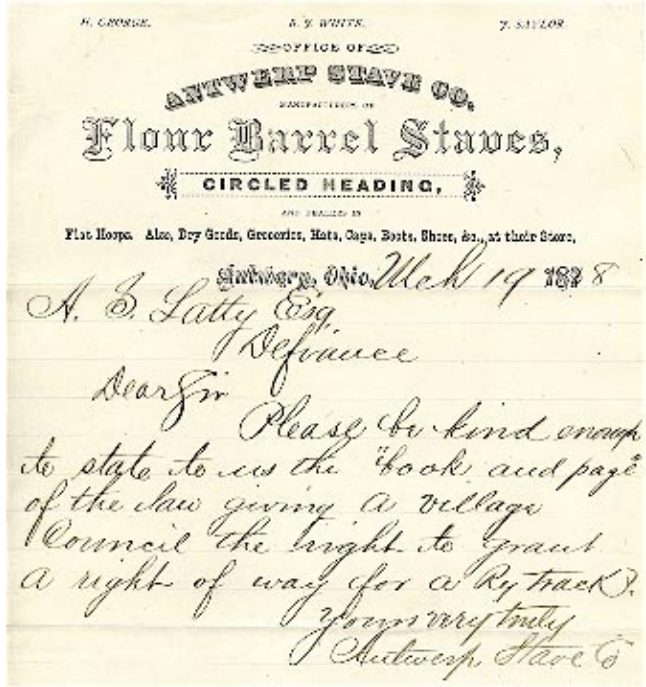 H. GEORGE. B. F. WHITE. F. SAYLOR.
OFFICE OF
ANTWERP STAVE CO.
MANUFACTURERS OF
Flour Barrel Staves,
CIRCLED HEADING,
AND DEALERS IN
Flat Hoops. Also, Dry Goods, Groceries, Hats, Caps, Boots, Shoes, &c., at their Store,
Antwerp, Ohio, Mch 19 1878
A. S. Latty Esq
Defiance
Dear Sir
Please be kind enough
to state to us the "book and page"
of the law giving a village
Council the right to grant
a right of way for a Ry track?
Yours very truly
Antwerp Stave Co